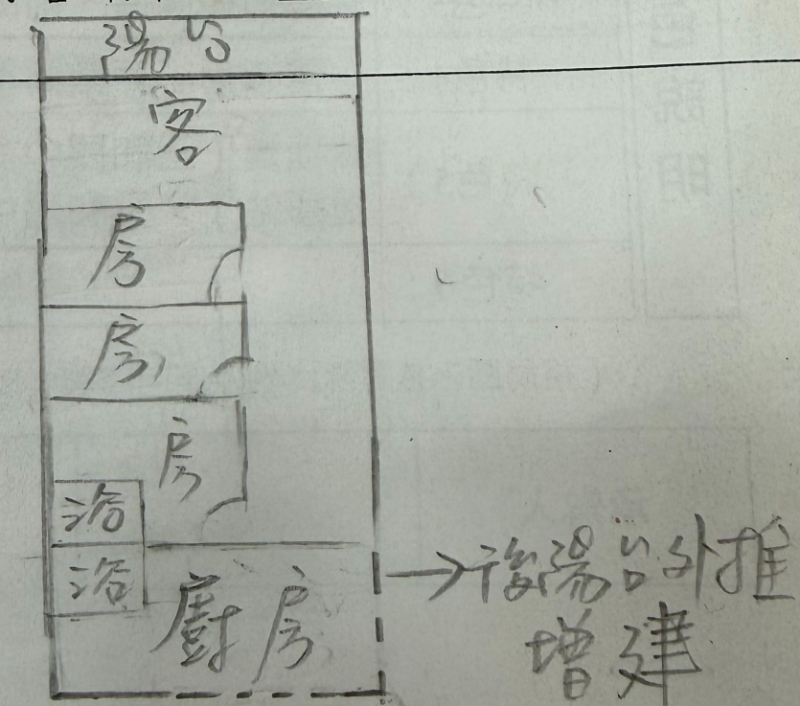 陽台
客
房
房
房
浴
浴
廚房
→後陽台外推
增建
說
明